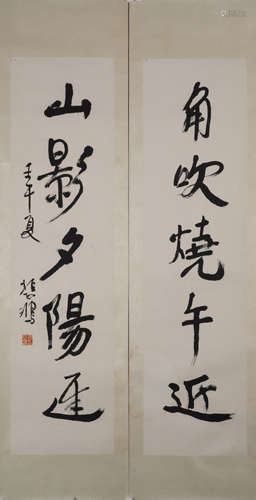 角吹燒午近
山影夕陽遲
壬午夏